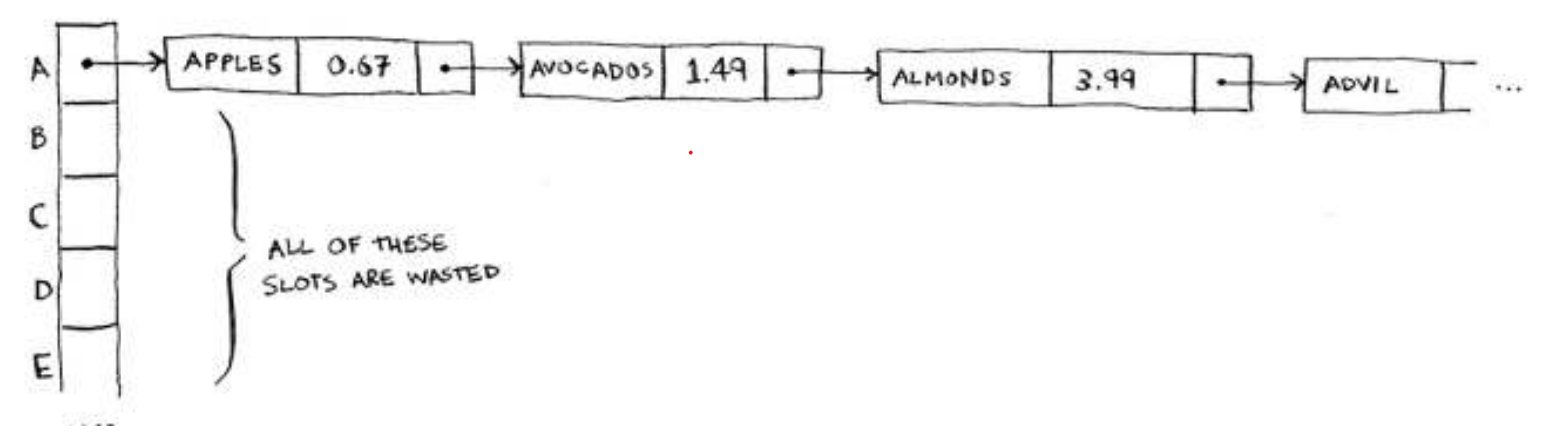 A APPLES 0.67 AVOCADOS 1.49 ALMONDS 3.99 ADVIL ...
B
C
ALL OF THESE
SLOTS ARE WASTED
D
E